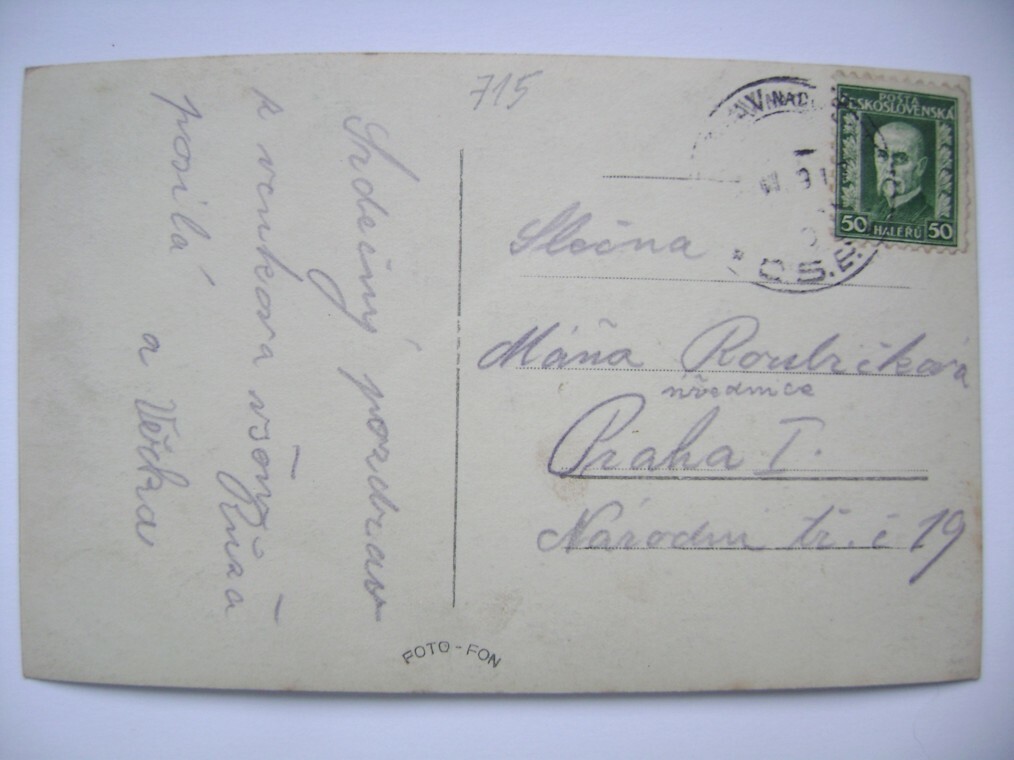 715
Srdečný pozdrav
z venkova všem
posílá Růža
a Věrka
POŠTA
ČESKOSLOVENSKÁ
50 HALÉŘŮ 50
V NAD
Č.S.
Slečna
Máňa Roubíčková
úřednice
Praha I.
Národní tř. č 19
FOTO-FON